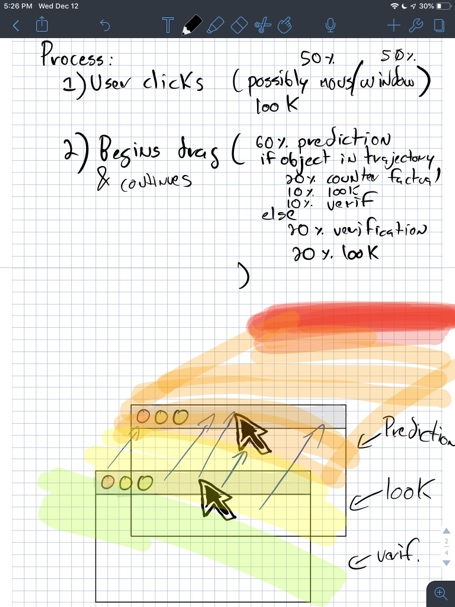 5:26 PM Wed Dec 12
30%
T
Process:
50% 50%
1) User clicks (possibly mous/window)
look
2) Begins drag (60% prediction
& continues
if object in trajectory
20% counter factual
10% look
10% verif
else
20% verification
20% look
)
Prediction
look
verif.
2
4